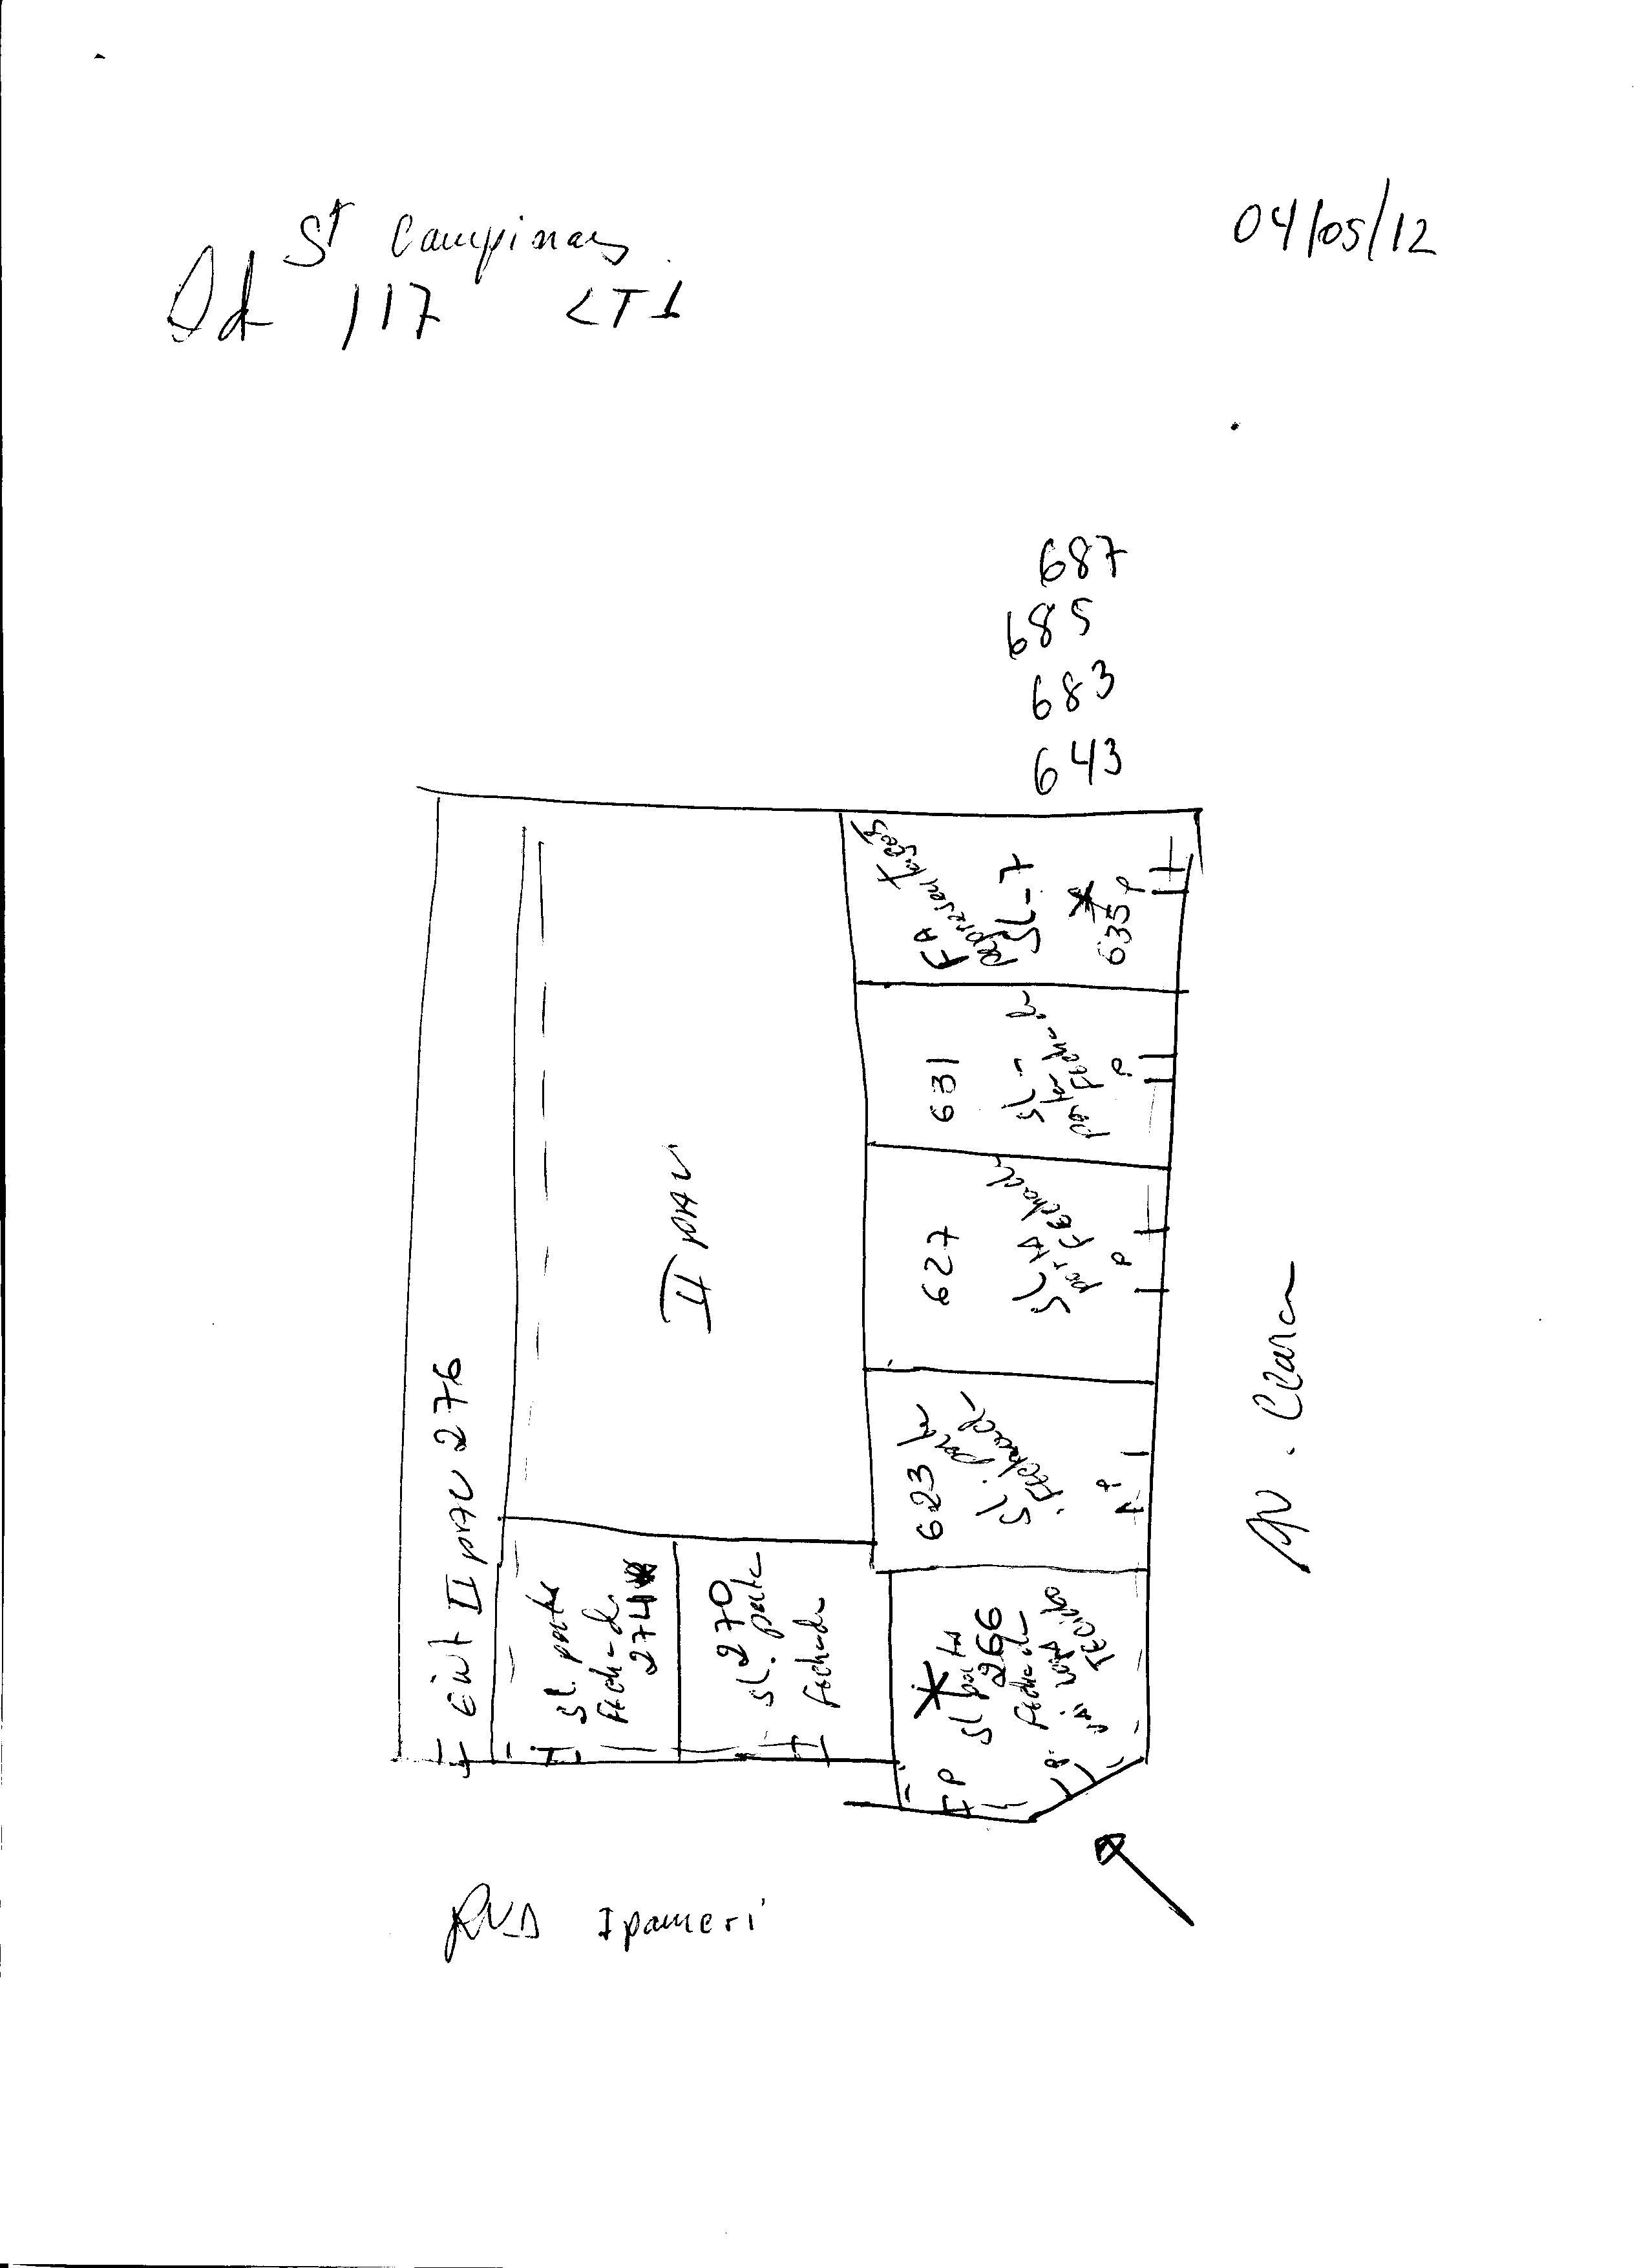 St Campinas
04/05/12
Qd 117 LT 1
687
685
683
643
FA
Representações
SL-7
635 P
631
SL -
porta
Fechada
P
627
SL
porta Fechada
P
623
SL. porta
Fechada
P
II PAV
II PAV 276
SL. porta
Fechada
274
270
SL. porta
Fechada
SL porta
266
Fechada
TECIDO
P
P
Av. Clara
RUA Ipameri